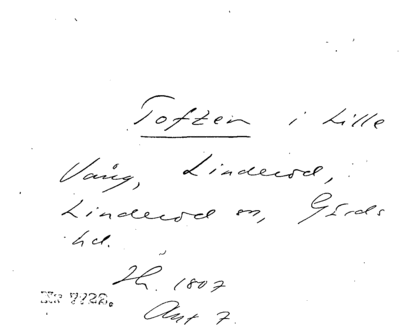 Toftzen i Lille
Vång, Linderöd,
Linderöd sn, Gärds
hd.
Jh. 1807
Akt 7